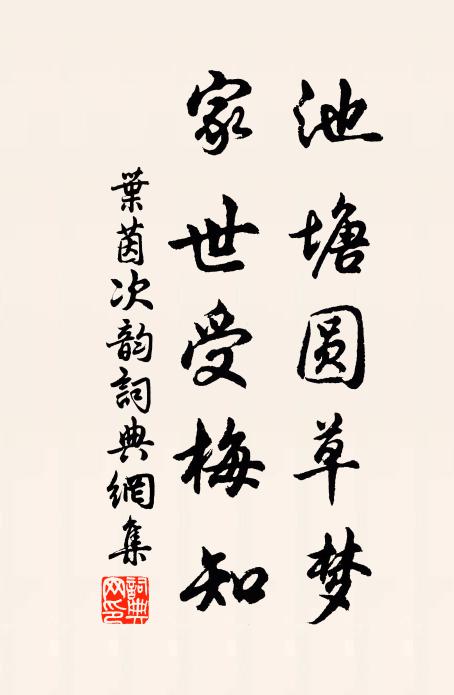 池塘圆草梦
家世受梅知
葉茵次韵詞典網集
詞典网印